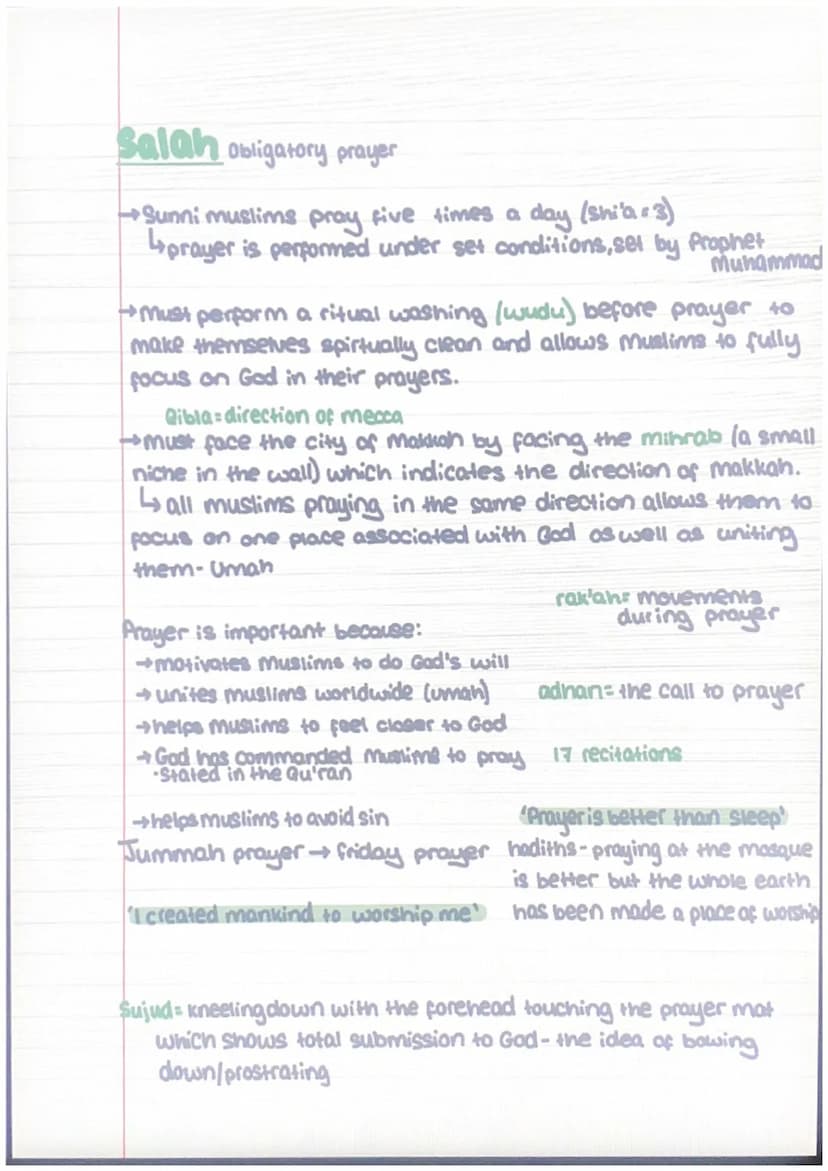 Salah Obligatory prayer
→Sunni muslims pray five times a day (Shi'a = 3)
↳prayer is performed under set conditions, set by Prophet
Muhammad
→Must perform a ritual washing (wudu) before prayer to
make themselves spirtually clean and allows Muslims to fully
focus on God in their prayers.
Qibla = direction of mecca
→must face the city of Makkah by facing the mihrab (a small
niche in the wall) which indicates the direction of makkah.
↳all muslims praying in the same direction allows them to
focus on one place associated with God as well as uniting
them - Umah
rak'ah = movements
during prayer
Prayer is important because:
→motivates Muslims to do God's will
→unites muslims worldwide (umah)
adhan = the call to prayer
→helps Muslims to feel closer to God
→God has commanded Muslims to pray
17 recitations
•Stated in the Qu'ran
→helps muslims to avoid sin
'Prayer is better than sleep'
Jummah prayer → friday prayer
hadiths - praying at the mosque
is better but the whole earth
'I created mankind to worship me'
has been made a place of worship
Sujud = kneeling down with the forehead touching the prayer mat
which shows total submission to God - the idea of bowing
down/prostrating